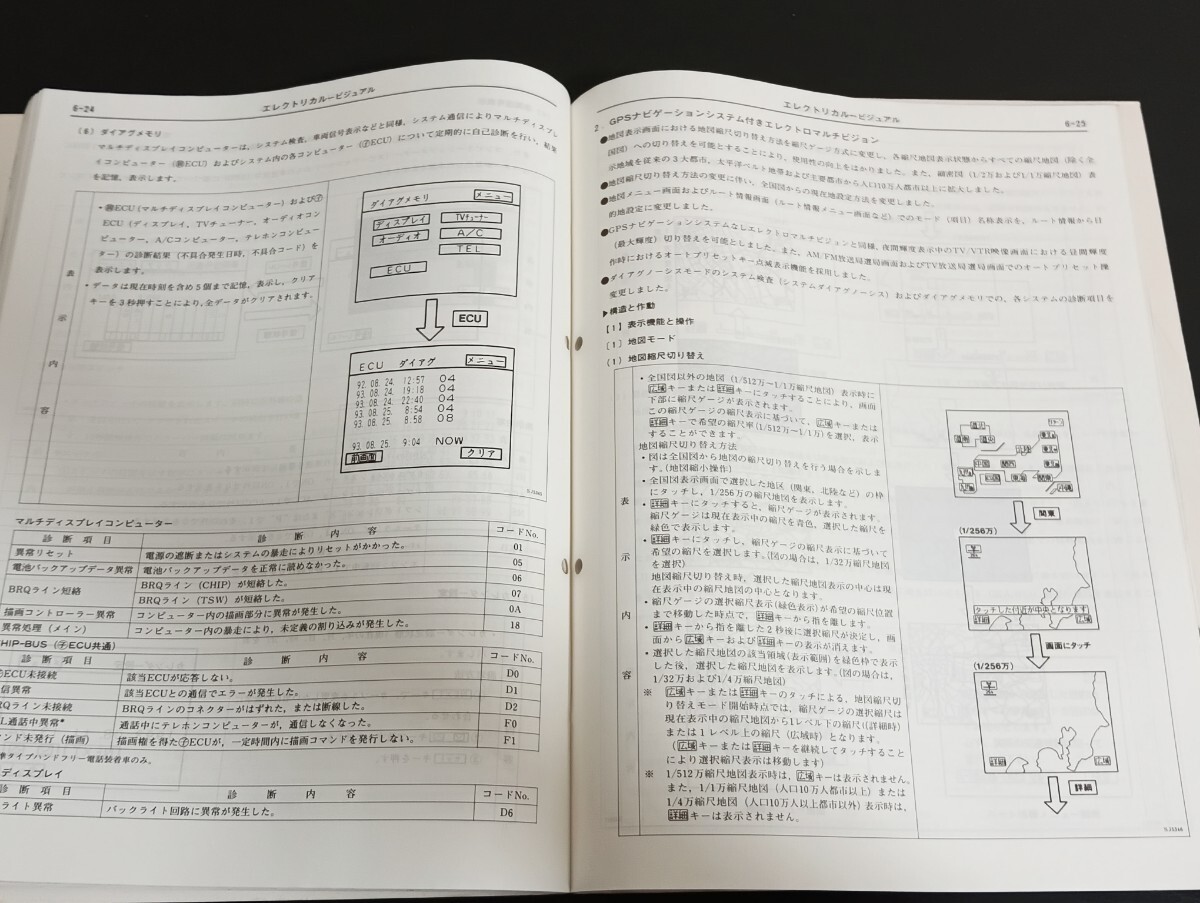 6-24
エレクトリカルービジュアル
(6) ダイアグメモリ
マルチディスプレイコンピューターは、システム検査、車両信号表示などと同様、システム通信によりマルチディスプレ
イコンピューター (ECU) およびシステム内の各コンピューター (ECU) について定期的に自己診断を行い、結果
を記憶、表示します。
表示内容
・ECU (マルチディスプレイコンピューター) および
ECU (ディスプレイ、TVチューナー、オーディオコン
ピューター、A/Cコンピューター、テレホンコンピュー
ター) の診断結果 (不具合発生日時、不具合コード) を
表示します。
・データは現在時刻を含め5個まで記憶、表示し、クリア
キーを3秒押すことにより、全データがクリアされます。
ダイアグメモリ メニュー
ディスプレイ TVチューナー
オーディオ A/C
TEL
ECU
ECU
ECU ダイアグ メニュー
92. 08. 24. 12:57 04
93. 08. 24. 19:18 04
93. 08. 24. 22:40 04
93. 08. 25. 8:54 04
93. 08. 25. 8:58 08
93. 08. 25. 9:04 NOW
前画面 クリア
マルチディスプレイコンピューター
診断項目 診断内容 コードNo.
異常リセット 電源の遮断またはシステムの暴走によりリセットがかかった。 01
電池バックアップデータ異常 電池バックアップデータを正常に読めなかった。 05
BRQライン短絡 BRQライン (CHIP) が短絡した。 06
BRQライン (TSW) が短絡した。 07
描画コントローラー異常 コンピューター内の描画部分に異常が発生した。 0A
異常処理 (メイン) コンピューター内の暴走により、未定義の割り込みが発生した。 18
CHIP-BUS (ECU共通)
診断項目 診断内容 コードNo.
ECU未接続 該当ECUが応答しない。 D0
信異常 該当ECUとの通信でエラーが発生した。 D1
RQライン未接続 BRQラインのコネクターがはずれた、または断線した。 D2
L通話中異常* 通話中にテレホンコンピューターが、通信しなくなった。 F0
ンド未発行 (描画) 描画権を得たECUが、一定時間内に描画コマンドを発行しない。 F1
準タイプハンドフリー電話装着車のみ。
ディスプレイ
診断項目 診断内容 コードNo.
ライト異常 バックライト回路に異常が発生した。 D6
エレクトリカルービジュアル
6-25
2. GPSナビゲーションシステム付きエレクトロマルチビジョン
●地図表示画面における地図縮尺切り替え方法を縮尺ゲージ方式に変更し、各縮尺地図表示状態からすべての縮尺地図 (除く全
国図) への切り替えを可能とすることにより、使用性の向上をはかりました。また、細密図 (1/2万および1/1万縮尺地図) 表
示地域を従来の3大都市、太平洋ベルト地帯および主要都市から人口10万人都市以上に拡大しました。
●地図縮尺切り替え方法の変更に伴い、全国図からの現在地設定方法を変更しました。
●地図メニュー画面およびルート情報画面 (ルート情報メニュー画面など) でのモード (項目) 名称表示を、ルート情報から目
的地設定に変更しました。
●GPSナビゲーションシステムなしエレクトロマルチビジョンと同様、夜間輝度表示中のTV/VTR映像画面における昼間輝度
(最大輝度) 切り替えを可能としました。また、AM/FM放送局選局画面およびTV放送局選局画面でのオートプリセット操
作時におけるオートプリセットキー点滅表示機能を採用しました。
●ダイアグノーシスモードのシステム検査 (システムダイアグノーシス) およびダイアグメモリでの、各システムの診断項目を
変更しました。
▶構造と作動
[1] 表示機能と操作
〔1〕地図モード
(1) 地図縮尺切り替え
表示内容
・全国図以外の地図 (1/512万~1/1万縮尺地図) 表示時に
広域キーまたは詳細キーにタッチすることにより、画面
下部に縮尺ゲージが表示されます。
この縮尺ゲージの縮尺表示に基づいて、広域キーまたは
詳細キーで希望の縮尺率(1/512万~1/1万)を選択、表示
することができます。
地図縮尺切り替え方法
・図は全国図から地図の縮尺切り替えを行う場合を示しま
す。(地図縮小操作)
・全国図表示画面で選択した地区 (関東、北陸など) の枠
にタッチし、1/256万の縮尺地図を表示します。
・詳細キーにタッチすると、縮尺ゲージが表示されます。
縮尺ゲージは現在表示中の縮尺を青色、選択した縮尺を
緑色で表示します。
・詳細キーにタッチし、縮尺ゲージの縮尺表示に基づいて
希望の縮尺を選択します。(図の場合は、1/32万縮尺地図
を選択)
地図縮尺切り替え時、選択した縮尺地図表示の中心は現
在表示中の縮尺地図の中心となります。
・縮尺ゲージの選択縮尺表示(緑色表示)が希望の縮尺位置
まで移動した時点で、詳細キーから指を離します。
・詳細キーから指を離した2秒後に選択縮尺が決定し、画
面から広域キーおよび詳細キーの表示が消えます。
・選択した縮尺地図の該当領域(表示範囲)を緑色枠で表示
した後、選択した縮尺地図を表示します。(図の場合は、
1/32万および1/4万縮尺地図)
※ 広域キーまたは詳細キーのタッチによる、地図縮尺切
り替えモード開始時点では、縮尺ゲージの選択縮尺は
現在表示中の縮尺地図から1レベル下の縮尺(詳細時)
または1レベル上の縮尺 (広域時) となります。
(広域キーまたは詳細キーを継続してタッチすること
により選択縮尺表示は移動します)
※ 1/512万縮尺地図表示時は、広域キーは表示されません。
また、1/1万縮尺地図 (人口10万人都市以上) または
1/4万縮尺地図 (人口10万人以上都市以外) 表示時は、
詳細キーは表示されません。
道北
道南 道央
中国 関西 東海 関東
北陸
四国
沖縄
関東
(1/256万)
タッチした付近が中央となります
詳細 広域
画面にタッチ
(1/256万)
詳細 広域
詳細